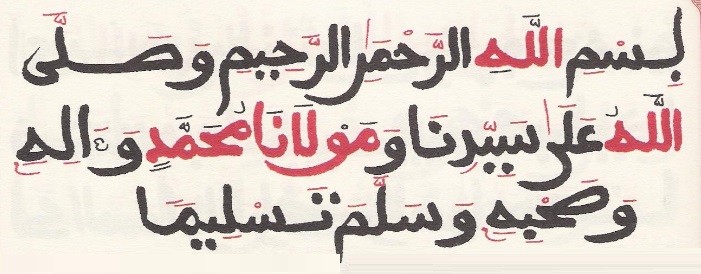 بِسْمِ اللَّهِ الرَّحْمَٰنِ الرَّحِيمِ وَصَلَّى
اللَّهُ عَلَى سَيِّدِنَا وَمَوْلَانَا مُحَمَّدٍ وَءَالِهِ
وَصَحْبِهِ وَسَلَّمَ تَسْلِيمَا